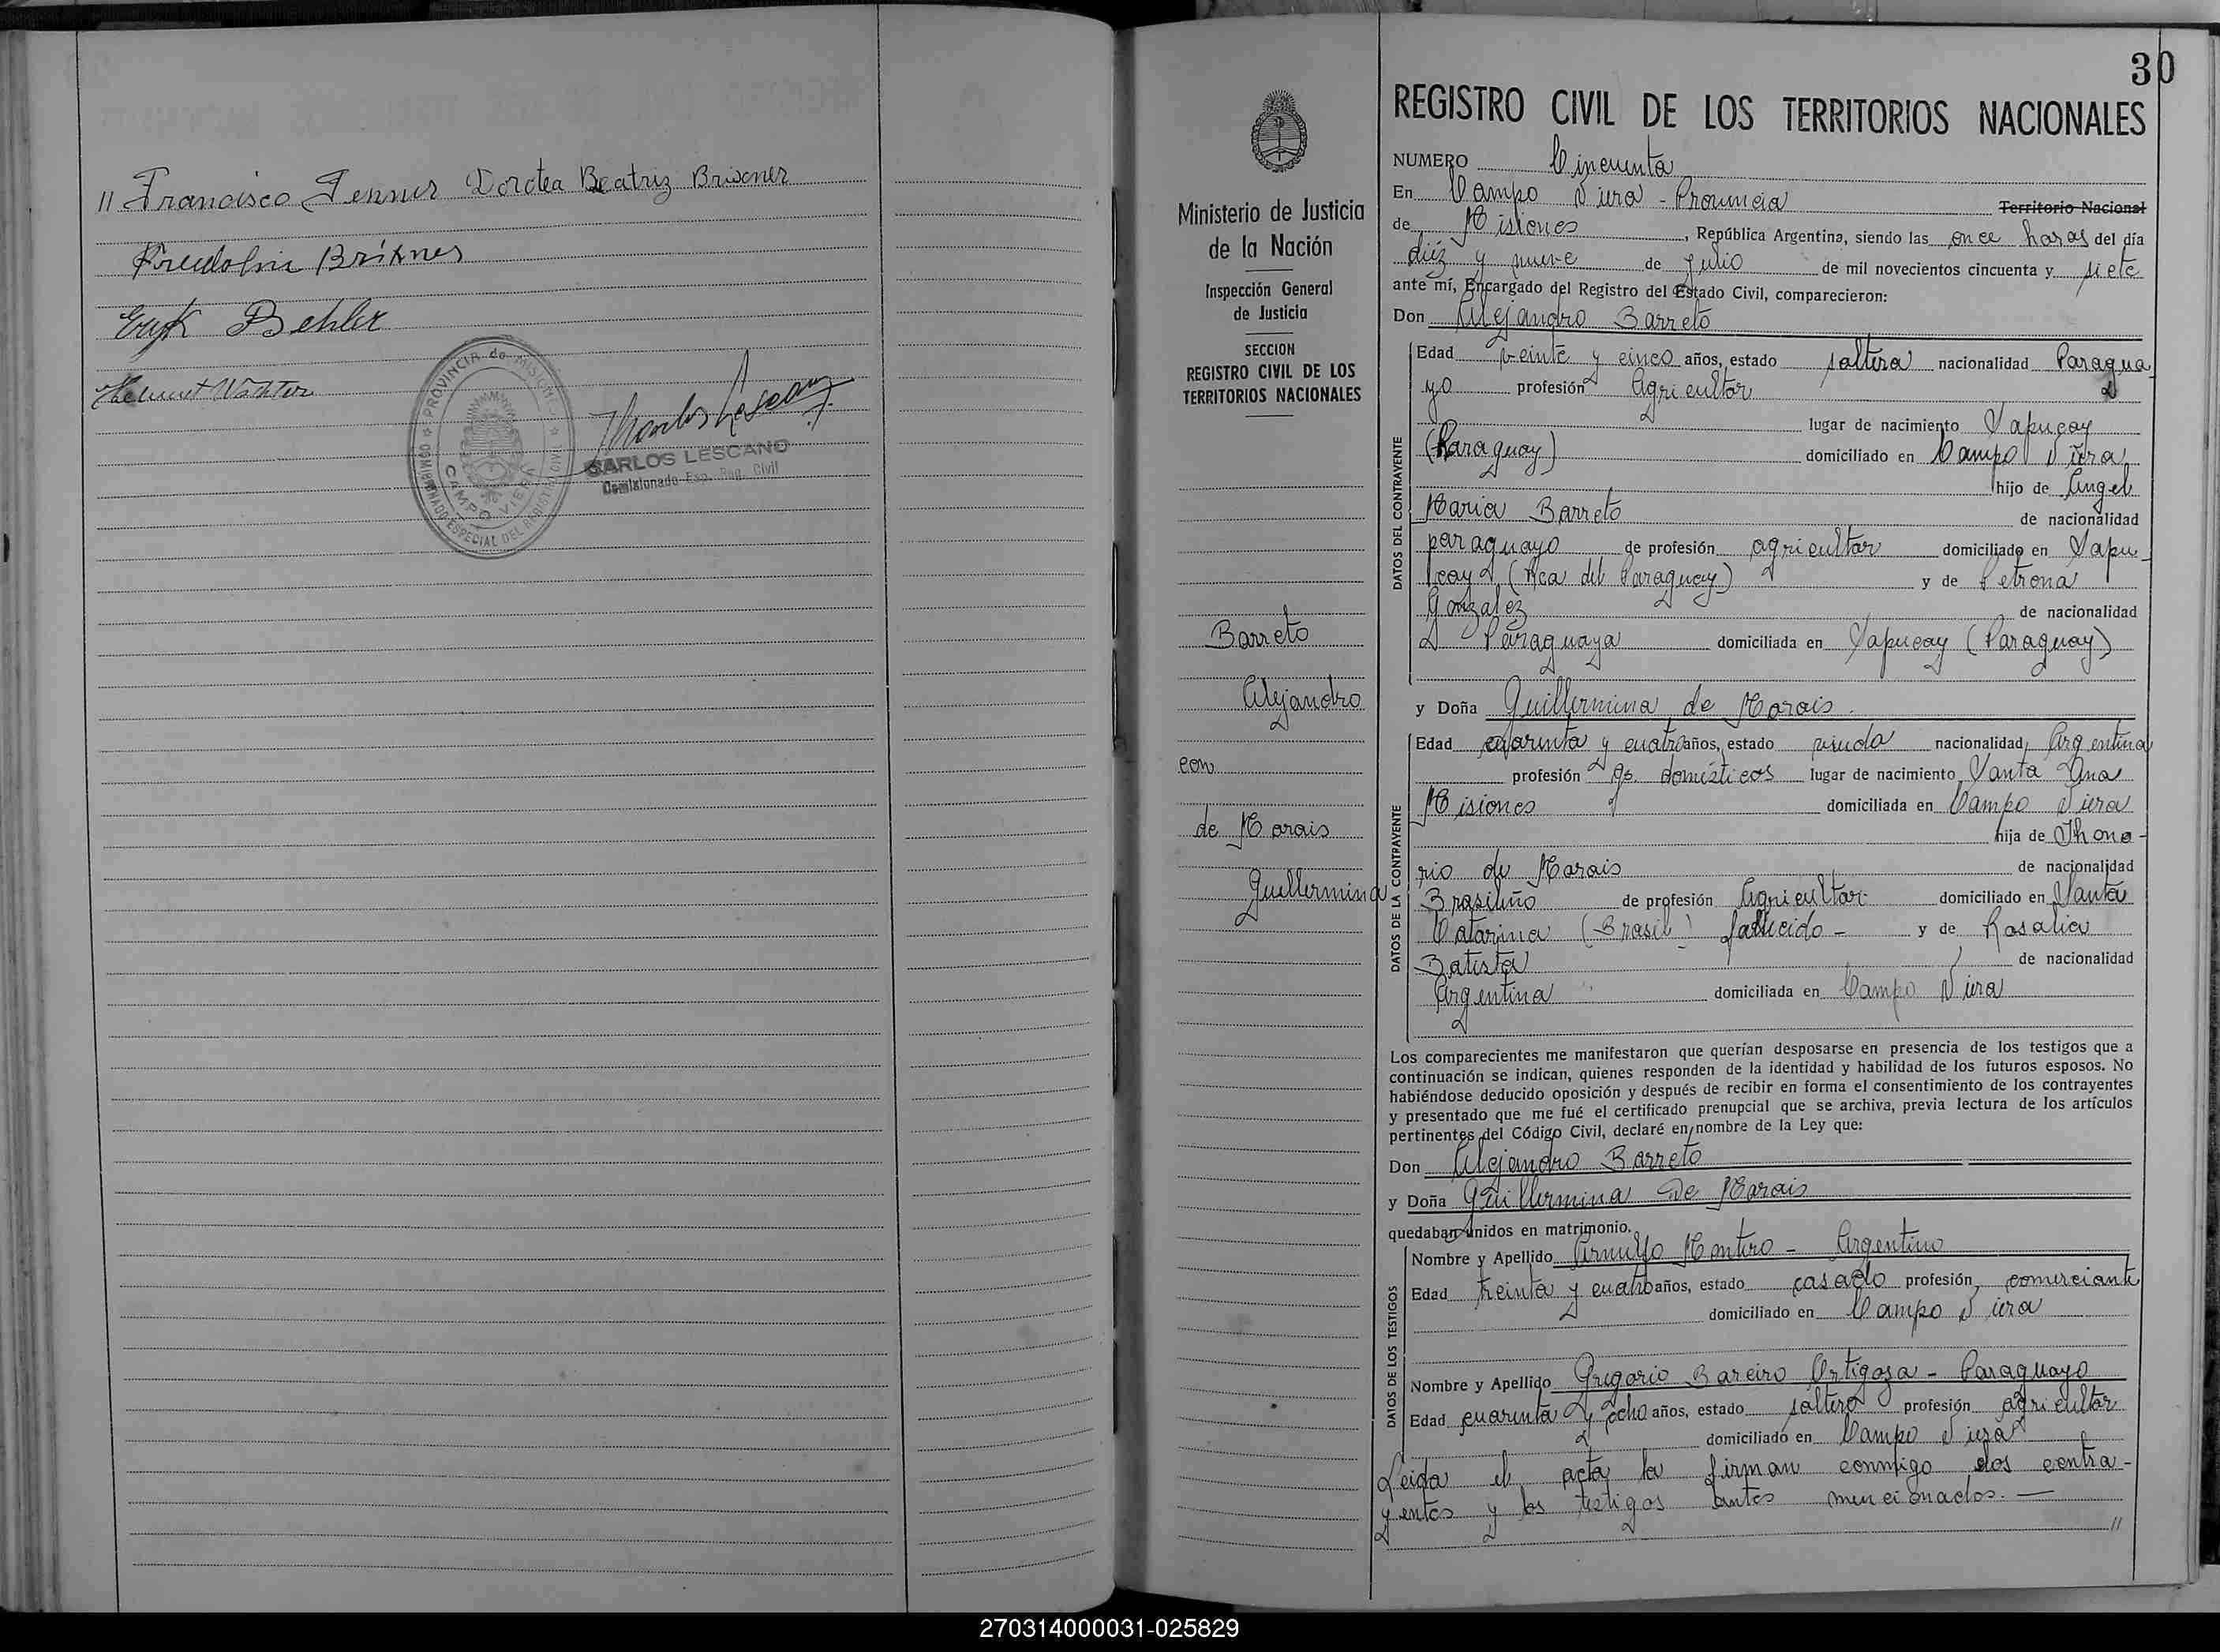 // Francisco Fenner Dorotea Beatriz Brixner
Fridolin Brixner
Behler
Helmut
PROVINCIA de MISIONES
COMISIONADO ESPECIAL DEL REGISTRO CIVIL
CAMPO VIERA
CARLOS LESCANO
Comisionado Esp. Reg. Civil
30
Ministerio de Justicia
de la Nación
Inspección General
de Justicia
SECCION
REGISTRO CIVIL DE LOS
TERRITORIOS NACIONALES
Barreto
Alejandro
con
de Morais
Guillermina
REGISTRO CIVIL DE LOS TERRITORIOS NACIONALES
NUMERO Cincuenta
En Campo Viera - Provincia Territorio Nacional
de Misiones, República Argentina, siendo las once horas del día
diéz y nueve de Julio de mil novecientos cincuenta y siete
ante mí, Encargado del Registro del Estado Civil, comparecieron:
Don Alejandro Barreto
DATOS DEL CONTRAYENTE
Edad veinte y cinco años, estado soltero nacionalidad Paragua
yo profesión Agricultor
lugar de nacimiento Sapucay
(Paraguay) domiciliado en Campo Viera
hijo de Angel
Maria Barreto de nacionalidad
paraguayo de profesión agricultor domiciliado en Sapu-
cay (Rca del Paraguay) y de Petrona
Gonzalez de nacionalidad
Paraguaya domiciliada en Sapucay (Paraguay)
y Doña Guillermina de Morais.
DATOS DE LA CONTRAYENTE
Edad cuarenta y cuatro años, estado viuda nacionalidad Argentina
profesión qs. domésticos lugar de nacimiento Santa Ana
Misiones domiciliada en Campo Viera
hija de Jhono-
rio de Morais de nacionalidad
Brasileño de profesión Agricultor domiciliado en Santa
Catarina (Brasil) fallecido - y de Rosalia
Batista de nacionalidad
Argentina domiciliada en Campo Viera
Los comparecientes me manifestaron que querían desposarse en presencia de los testigos que a
continuación se indican, quienes responden de la identidad y habilidad de los futuros esposos. No
habiéndose deducido oposición y después de recibir en forma el consentimiento de los contrayentes
y presentado que me fué el certificado prenupcial que se archiva, previa lectura de los artículos
pertinentes del Código Civil, declaré en nombre de la Ley que:
Don Alejandro Barreto
y Doña Guillermina De Morais
quedaban unidos en matrimonio.
DATOS DE LOS TESTIGOS
Nombre y Apellido Arnulfo Montiro - Argentino
Edad treinta y cuatro años, estado casado profesión comerciante
domiciliado en Campo Viera
Nombre y Apellido Gregorio Bareiro Ortigoza - Paraguayo
Edad cuarenta y ocho años, estado soltero profesión agricultor
domiciliado en Campo Viera
Leida el acta la firman conmigo los contra-
yentes y los testigos antes mencionados. —
//
270314000031-025829